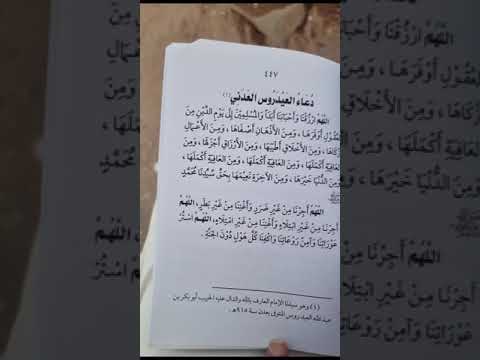 ٤٤٧
دُعَاءُ العَيْدَرُوسِ العَدَنِي(١)
اللَّهُمَّ ارْزُقْنَا وَأَحْبَابَنَا أَبَداً وَالْمُسْلِمِينَ إِلَى يَوْمِ الدِّينِ مِنَ
العُقُولِ أَوْفَرَهَا ، وَمِنَ الأَذْهَانِ أَصْفَاهَا ، وَمِنَ الأَعْمَالِ
أَزْكَاهَا ، وَمِنَ الأَخْلَاقِ أَطْيَبَهَا ، وَمِنَ الأَرْزَاقِ أَجْزَلَهَا ،
وَمِنَ العَافِيَةِ أَكْمَلَهَا ، وَمِنَ العَافِيَةِ أَكْمَلَهَا ،
وَمِنَ الدُّنْيَا خَيْرَهَا ، وَمِنَ الآخِرَةِ نَعِيمَهَا بِحَقِّ سَيِّدِنَا مُحَمَّدٍ
اللَّهُمَّ أَجِرْنَا مِنْ غَيْرِ ضَرَرٍ وَأَغِثْنَا مِنْ غَيْرِ نَظَرٍ، اللَّهُمَّ
أَجِرْنَا مِنْ غَيْرِ ابْتِلَاءٍ وَأَغِثْنَا مِنْ غَيْرِ ابْتِلَاءٍ، اللَّهُمَّ اسْتُرْ
عَوْرَاتِنَا وَآمِنْ رَوْعَاتِنَا وَاكْفِنَا كُلَّ هَوْلٍ دُونَ الجَنَّةِ .
(١) وهو سيدنا الإمام العارف بالله والدال عليه الحبيب أبو بكر بن
عبد الله العيدروس المتوفى بعدن سنة ٩١٤هـ.